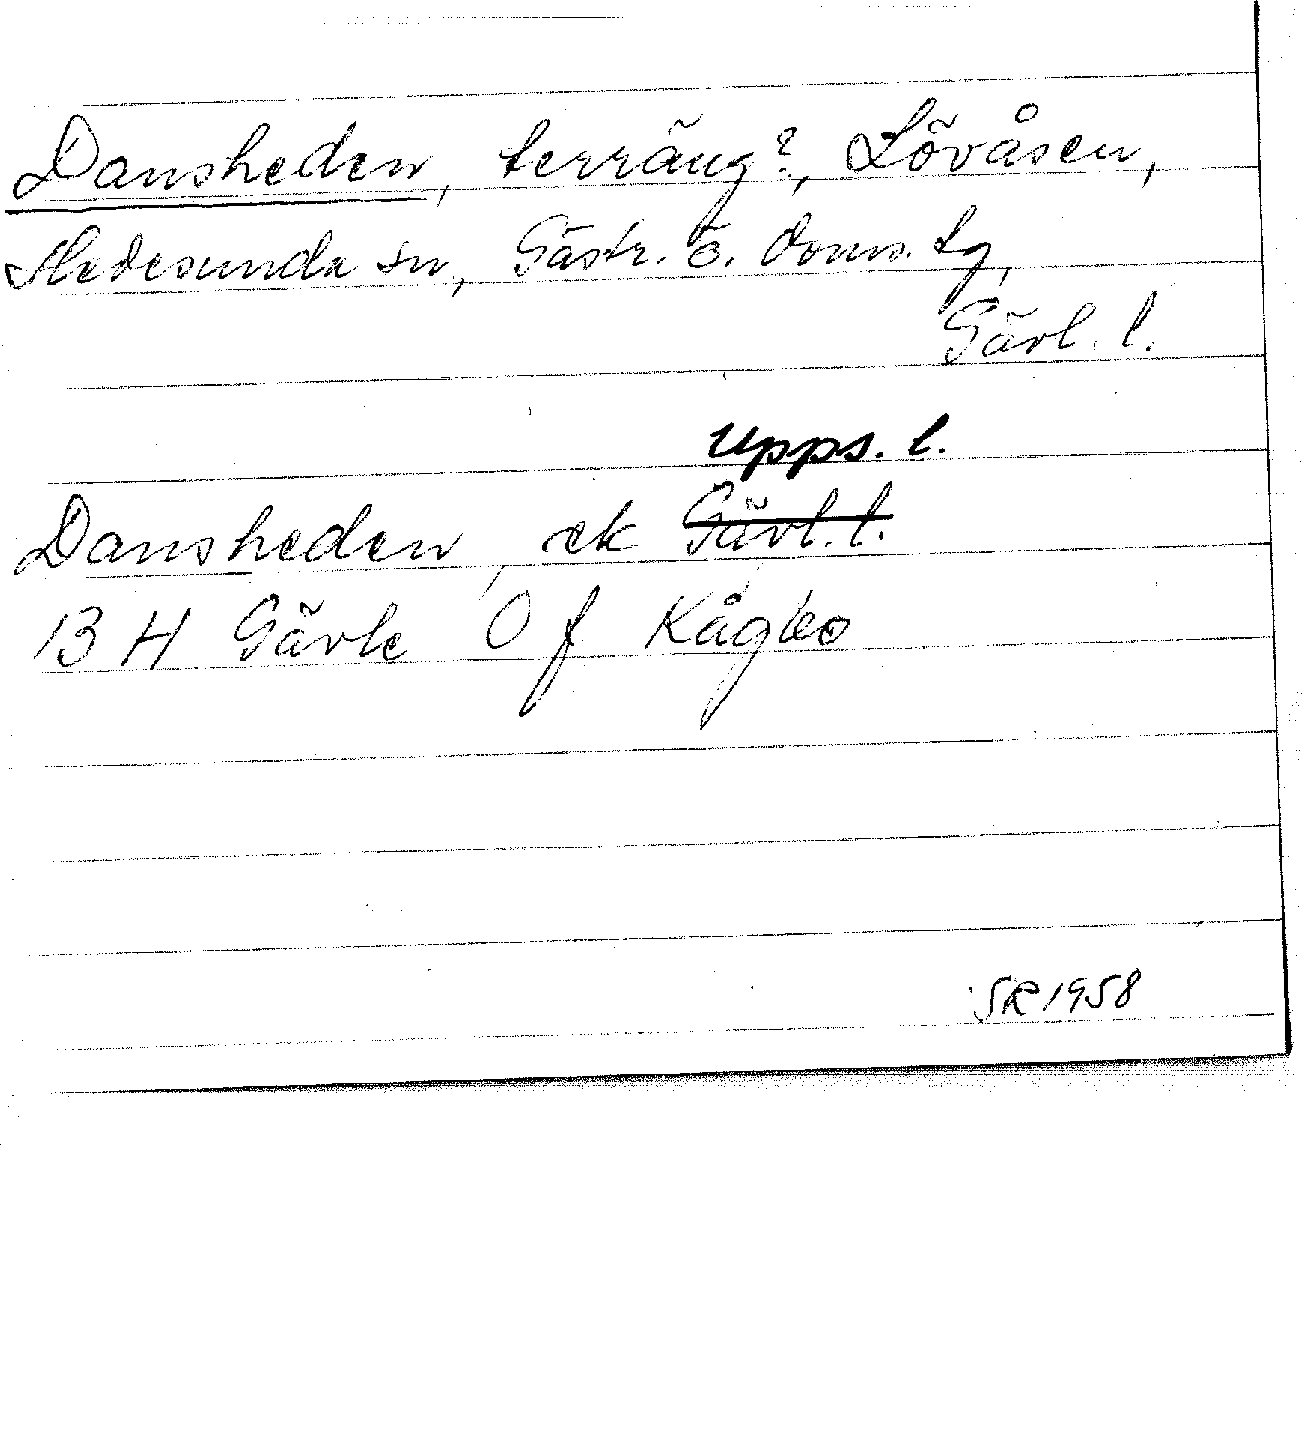 Dansheden, terräng?, Lövåsen,
Hedesunda sn, Gästr. ö. doms. tg,
Gävl. l.
Upps. l.
Dansheden, ek Gävl. l.
13 H Gävle 0 f Kågbo
SR 1958